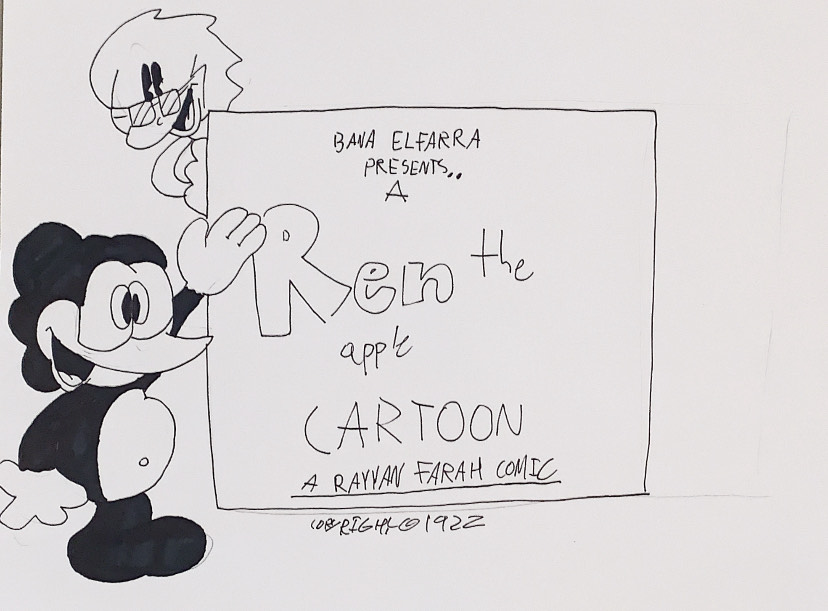 BANA ELFARRA
PRESENTS..
A
Ren the
apple
CARTOON
A RAYYAN FARAH COMIC
COPYRIGHT © 1922